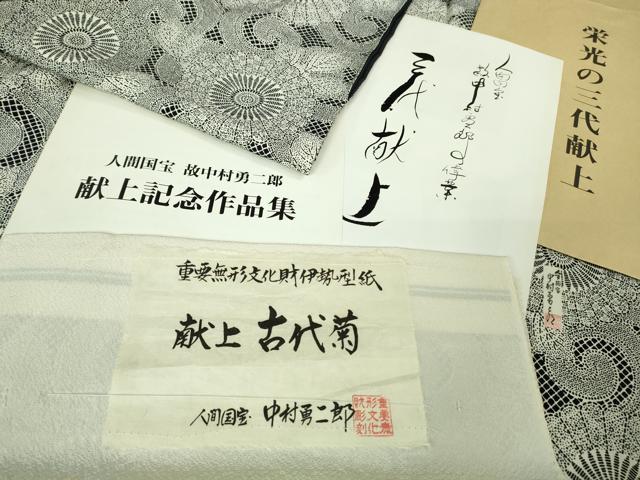 栄光の三代献上
三代献上
人間国宝 故中村勇二郎
献上記念作品集
重要無形文化財伊勢型紙
献上 古代菊
人間国宝 中村勇二郎